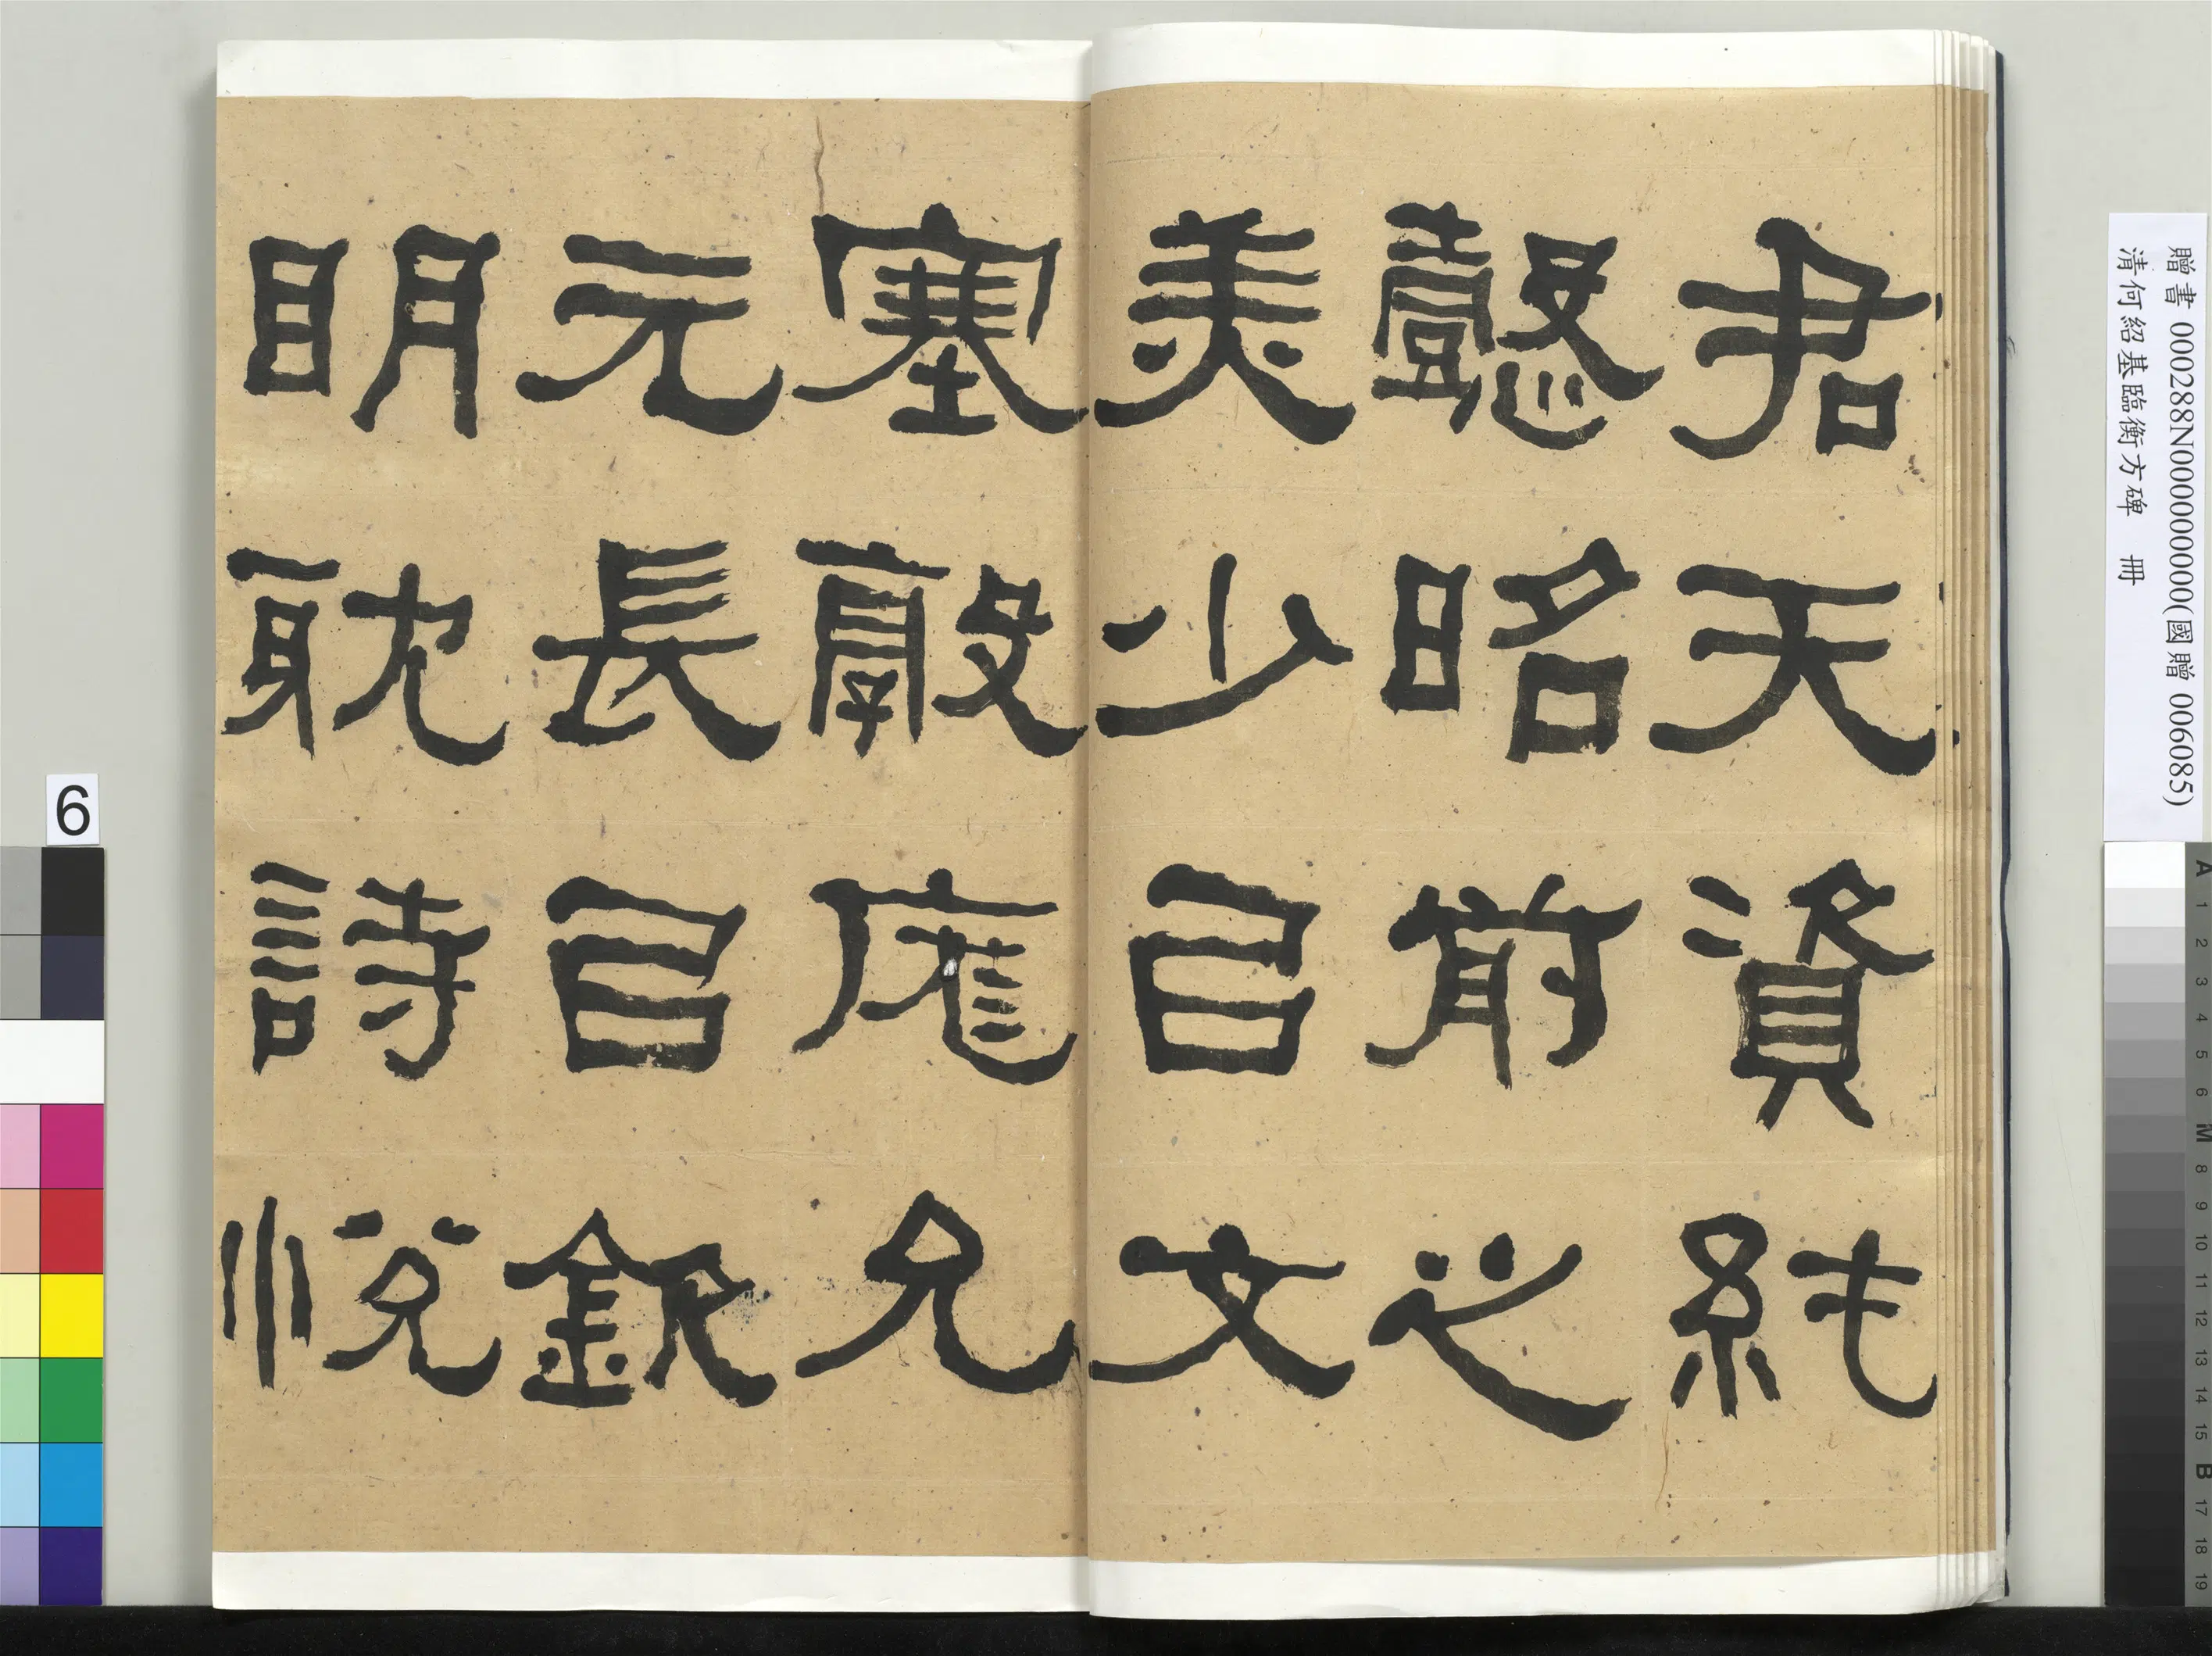 君天資純
懿昭前之
美少㠯文
塞敦厖允
元長㠯欽
明耽詩悅
贈書 000288N000000000(國贈 006085)
清何紹基臨衡方碑 冊
6
A 1 2 3 4 5 6 M 8 9 10 11 12 13 14 15 B 17 18 19